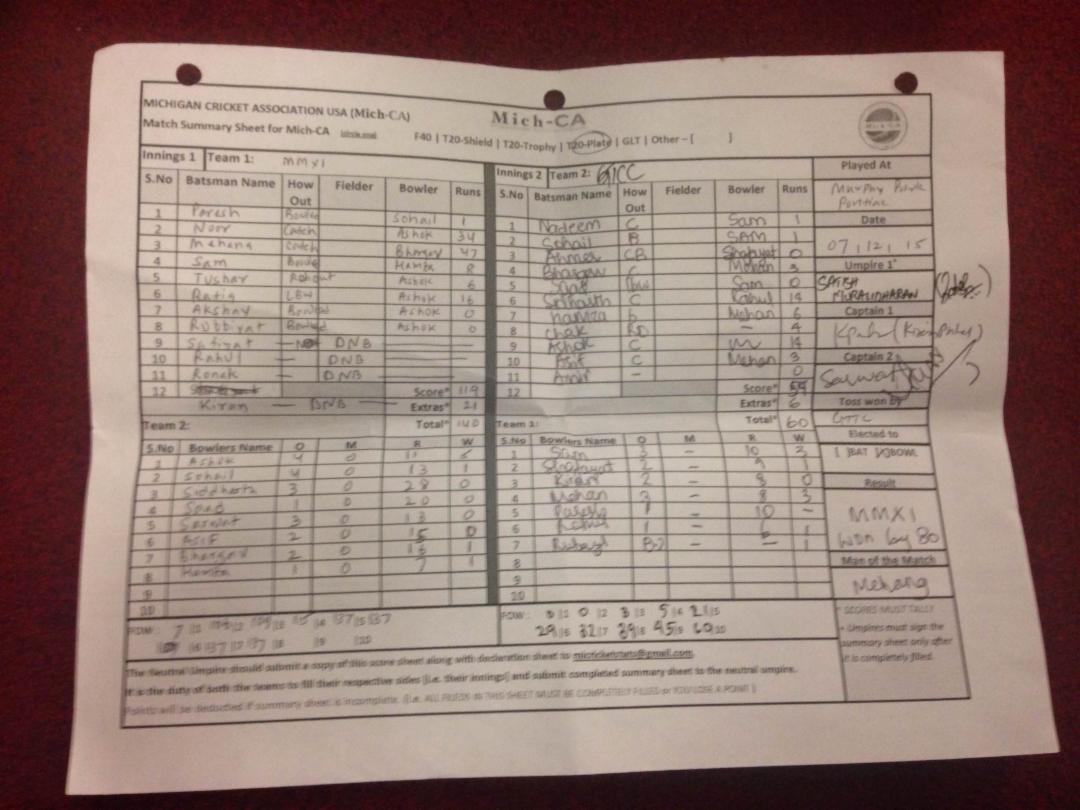 MICHIGAN CRICKET ASSOCIATION USA (Mich-CA)
Mich-CA
Match Summary Sheet for Mich-CA F40 | T20-Shield | T20-Trophy | T20-Plate | GLT | Other – [ ]
Innings 1 Team 1: MMXI
S.No Batsman Name How Out Fielder Bowler Runs
1 Paresh Bowled Sohail 1
2 Noor Catch Ashok 34
3 Mehang Catch Bhargav 47
4 Sam Bowled Hamza 8
5 Tushar Ashok 6
6 Ratig LBW Ashok 16
7 Akshay Bowled Ashok 0
8 Rubbiyat Bowled Ashok 0
9 Safiyat DNB
10 Rahul DNB
11 Ronak DNB
12 Score* 119
Kiran — DNB — Extras* 21
Total* 140
Team 2:
S.No Bowlers Name O M R W
1 Ashok 4 0 11 5
2 Sohail 4 0 13 1
3 Siddharth 3 0 28 0
4 Saad 1 0 20 0
5 Sarwat 3 0 13 0
6 Asif 2 0 15 0
7 Bhargav 2 0 1
8 Hamza 1 0 7 1
9
10
Innings 2 Team 2: GTCC
S.No Batsman Name How Out Fielder Bowler Runs
1 Nadeem C Sam 1
2 Sohail B SAM 1
3 Ahmed CB Shafayat 0
4 Bhargav C Mohan 3
5 Saad lbw Sam 0
6 Sidharth C Rahul 14
7 hamza b Mehan 6
8 chak RO – 4
9 Ashok C 14
10 Asif C Mehan 3
11 Amir – 0
12 Score*
Extras* 6
Total* 60
Team 1:
S.No Bowlers Name O M R W
1 Sam 3 – 10 3
2 Shafayat 2 – 9 1
3 Kiran 2 – 8 0
4 Mohan 3 – 8 3
5 Paresh 1 – 10 –
6 1 – 1
7 – – 1
8
9
10
Played At
Murphy Park
Pontiac
Date
07/12/15
Umpire 1*
SATISH
MURALIDHARAN
Captain 1
Captain 2
Sarwat
Toss won by
GTTC
Elected to
Result
MMXI
won by 80
Man of the Match
Mehang
* SCORES MUST TALLY
* Umpires must sign the
summary sheet only after
it is completely filled.
FOW:
FOW: 0/1 0/2 3/3 5/4 21/5
29/6 32/7 39/8 45/9 60/10
The Neutral Umpire should submit a copy of this score sheet along with declaration sheet to micricketstats@gmail.com.
It is the duty of both the teams to fill their respective sides (i.e. their innings) and submit completed summary sheet to the neutral umpire.
Points will be deducted if summary sheet is incomplete. (i.e. ALL FIELDS IN THIS SHEET MUST BE COMPLETELY FILLED or YOU LOSE A POINT)